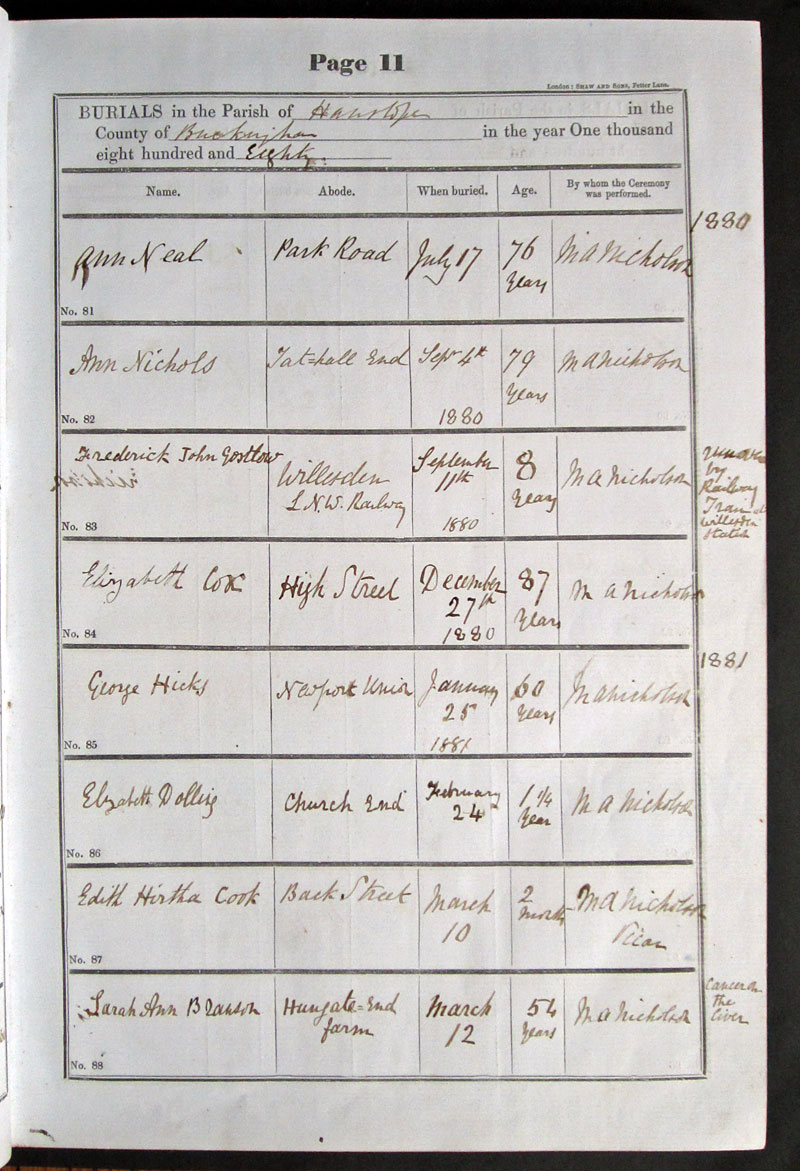 Page 11
London: SHAW AND SONS, Fetter Lane.
BURIALS in the Parish of Hanslope in the
County of Buckingham in the year One thousand
eight hundred and Eighty.
Name. Abode. When buried. Age. By whom the Ceremony was performed.
1880
Ann Neal Park Road July 17 76 Years M A Nicholson
No. 81
Ann Nichols Tat=hall End Sepr 4th 79 Years M A Nicholson
No. 82 1880
Frederick John Gostlow Willesden L.N.W. Railway September 11th 8 Years M A Nicholson
by
Railway
Train
Willesden
Station
No. 83 1880
Elizabeth Cox High Street December 27th 87 Years M A Nicholson
No. 84 1880
1881
George Hicks Newport Union January 25 60 Years M A Nicholson
No. 85 1881
Elizabeth Dolling Church End February 24 1 1/4 Year M A Nicholson
No. 86
Edith Hirtha Cook Back Street March 10 2 months M A Nicholson Vicar
No. 87
Sarah Ann Branson Hungate=End farm March 12 54 Years M A Nicholson
Cancer on
the
Liver
No. 88